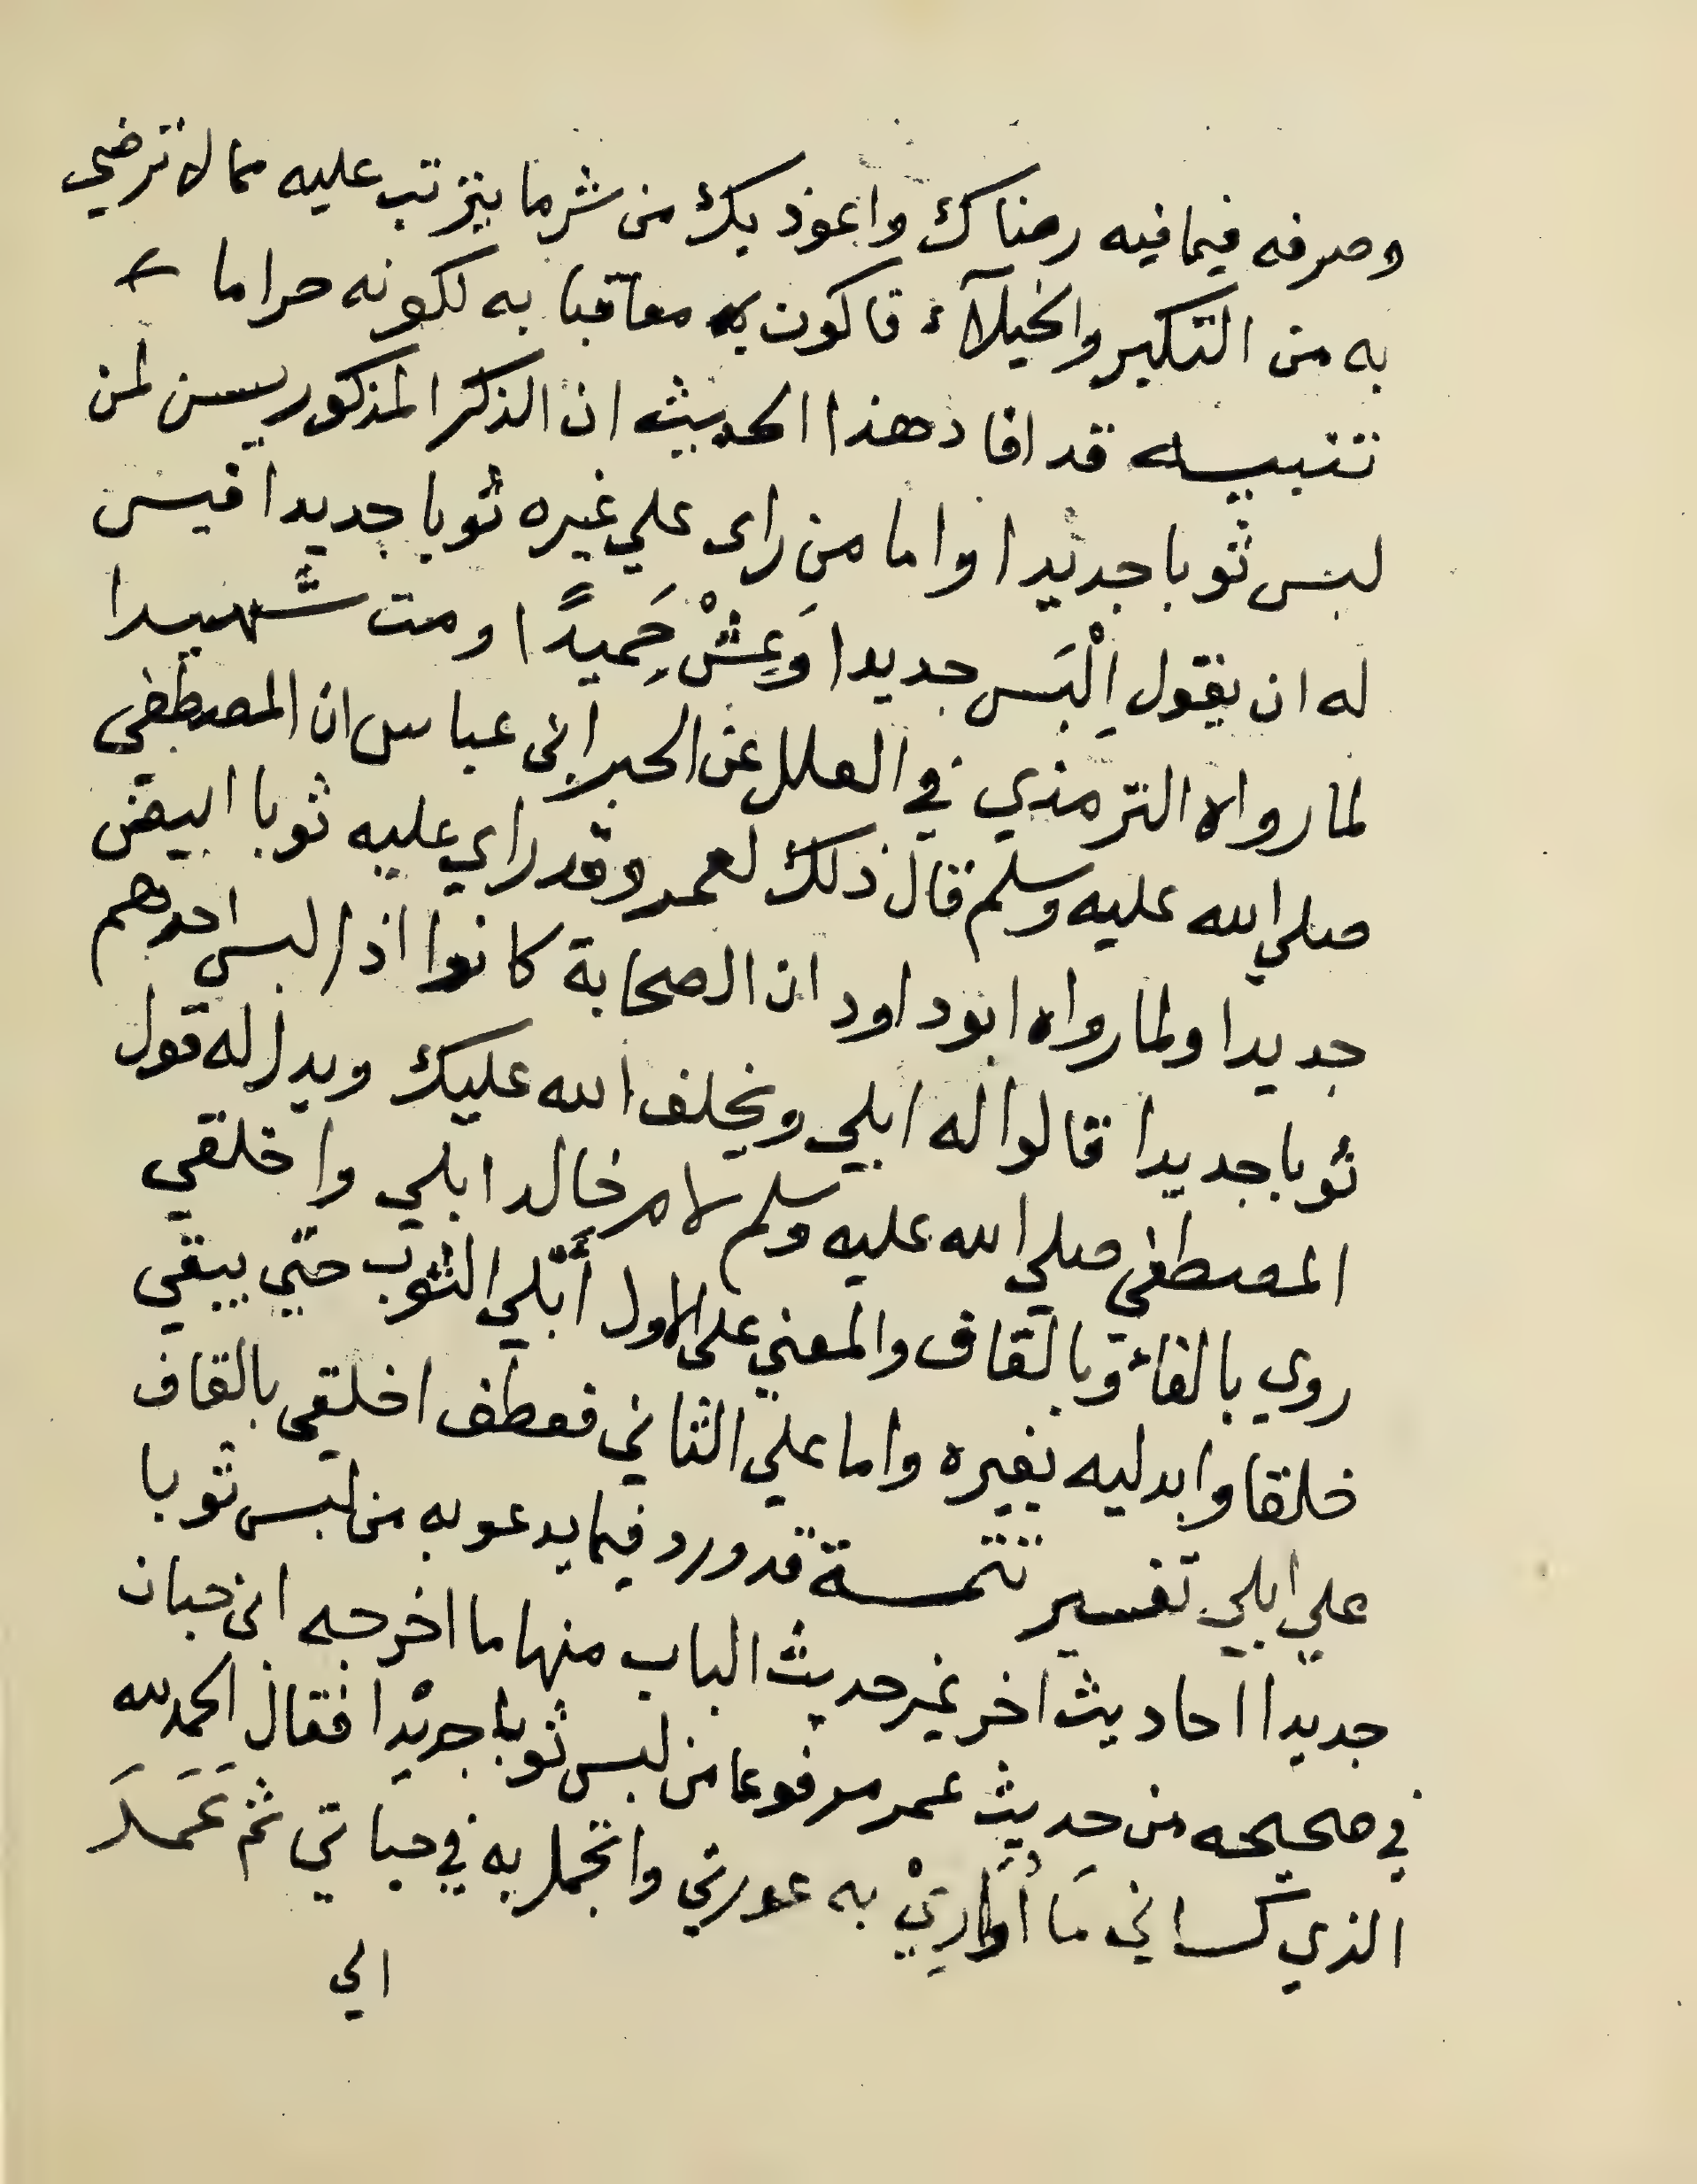 وصرفه فيما فيه رضاك واعوذ بك من شر ما يترتب عليه مما لا ترضي
به من التكبر والخيلآء فاكون به معاقبا به لكونه حراما
تنبيه قد افاد هذا الحديث ان الذكر المذكور يسن لمن
لبس ثوبا جديدا واما من راى علي غيره ثوبا جديدا فيسن
له ان يقول اِلْبَس جديدا وَعِشْ حَمِيدًا ومت شهيدا
لما رواه الترمذي في العلل عن الحبر ابن عباس ان المصطفي
صلي الله عليه وسلم قال ذلك لعمر وقد راي عليه ثوبا ابيض
جديدا ولما رواه ابو داود ان الصحابة كانوا اذا لبس احدهم
ثوبا جديدا قالوا له ابلي ويخلف الله عليك ويدل له قول
المصطفي صلي الله عليه وسلم لام خالد ابلي واخلقي
روي بالفاء وبالقاف والمعني على الاول أبلي الثوب حتي يبقي
خلقا وابدليه بغيره واما علي الثاني فعطف اخلقي بالقاف
علي ابلي تفسير تتمة قد ورد فيما يدعو به من لبس ثوبا
جديدا احاديث اخر غير حديث الباب منها ما اخرجه ابن حبان
في صحيحه من حديث عمر مرفوعا من لبس ثوبا جديدا فقال الحمد لله
الذي كساني مَا أُوَارِيْ به عورتي واتجمل به في حياتي ثم عَمَدَ
الي